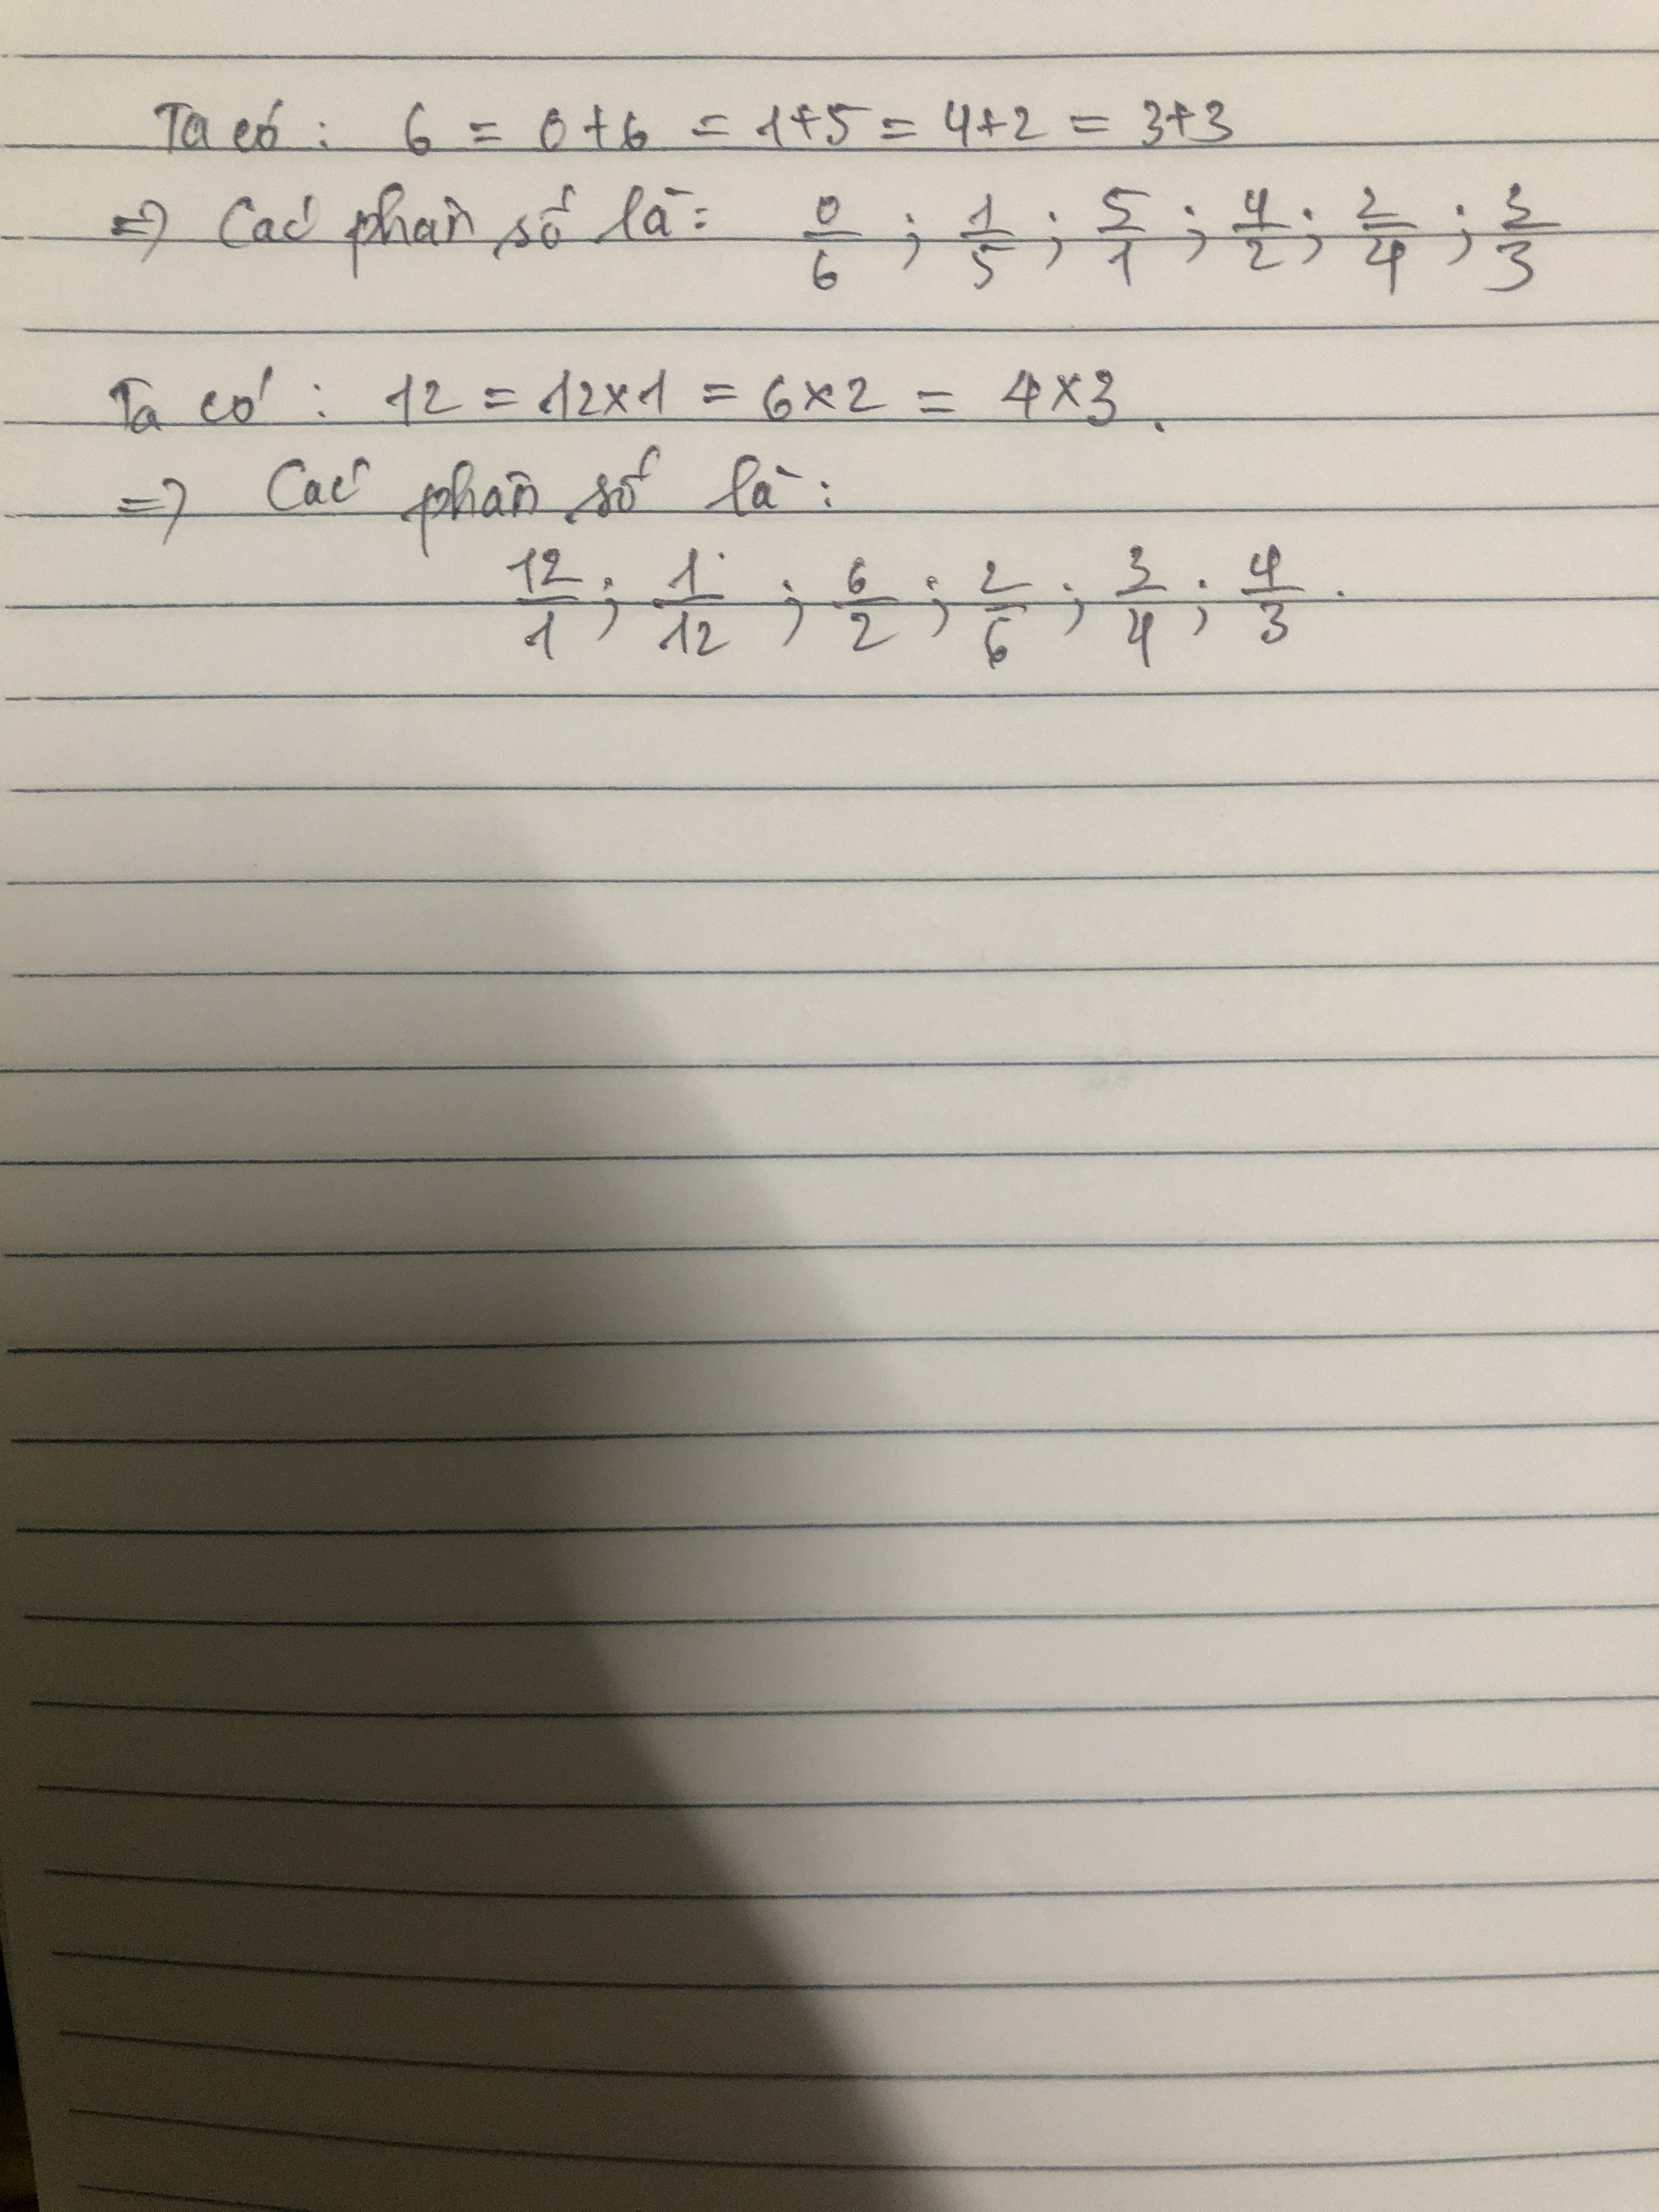 Ta có : 6 = 0+6 = 1+5 = 4+2 = 3+3
=> Các phân số là: 0/6 ; 1/5 ; 5/1 ; 4/2 ; 2/4 ; 3/3
Ta có : 12 = 12x1 = 6x2 = 4x3.
=> Các phân số là :
12/1 ; 1/12 ; 6/2 ; 2/6 ; 3/4 ; 4/3 .